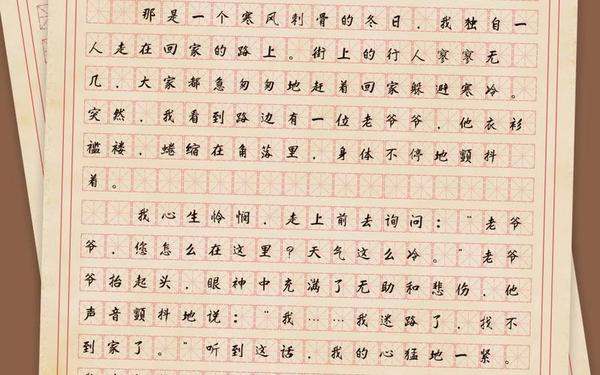 那是一个寒风刺骨的冬日，我独自一
人走在回家的路上。街上的行人寥寥无
几，大家都急匆匆地赶着回家躲避寒冷。
突然，我看到路边有一位老爷爷，他衣衫
褴褛，蜷缩在角落里，身体不停地颤抖
着。
我心生怜悯，走上前去询问：“老爷
爷，您怎么在这里？天气这么冷。”老爷
爷抬起头，眼神中充满了无助和悲伤，他
声音颤抖地说：“我……我迷路了，找不
到家了。”听到这话，我的心猛地一紧。